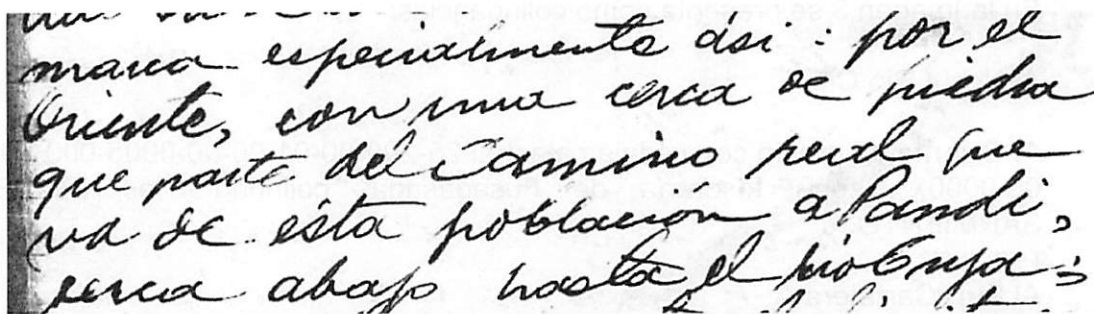 marca especialmente ási : por el
Oriente, con una cerca de piedra
que parte del Camino real que
va de ésta poblacion a Pandi,
cerca abajo hasta el rio Cuja ;